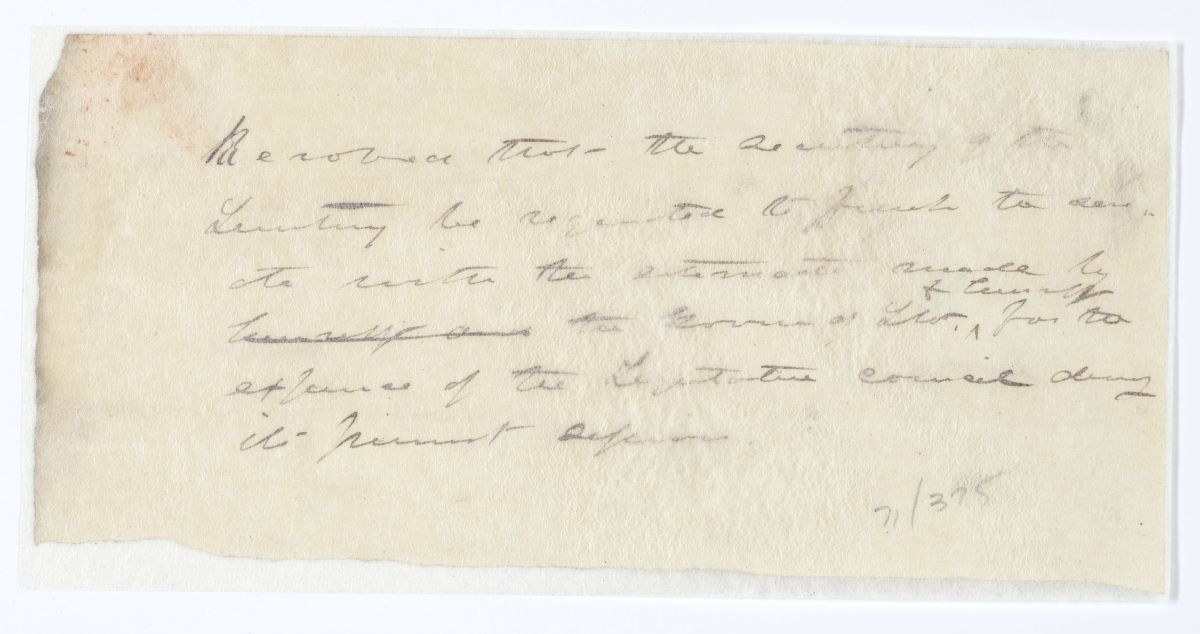 Resolved that the Secretary of the
Territory be requested to furnish the Sen-
ate with the estimate made by
& himself
himself and the Governor of Fla. ^ for the
expense of the Legislative council during
its present session.
71/375